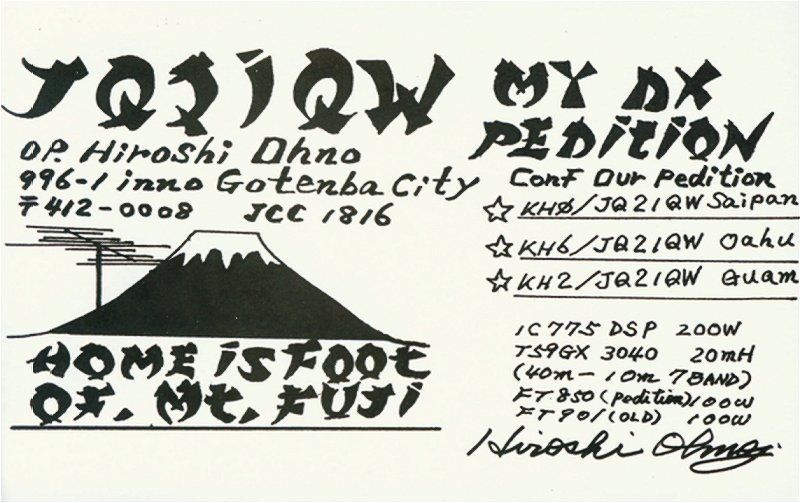 JQ2IQW
OP. Hiroshi Ohno
996-1 inno Gotenba City
〒412-0008 JCC 1816
HOME is FOOT
OF. Mt. FUJi
MY DX
PEDitiON
Conf Our Pedition
☆ KHØ/JQ2IQW Saipan
☆ KH6/JQ2IQW Oahu
☆ KH2/JQ2IQW Guam
IC775 DSP 200W
T59GX 3040 20mH
(40m-10m 7BAND)
FT850 (Pedition) 100W
FT901 (OLD) 100W
Hiroshi Ohno